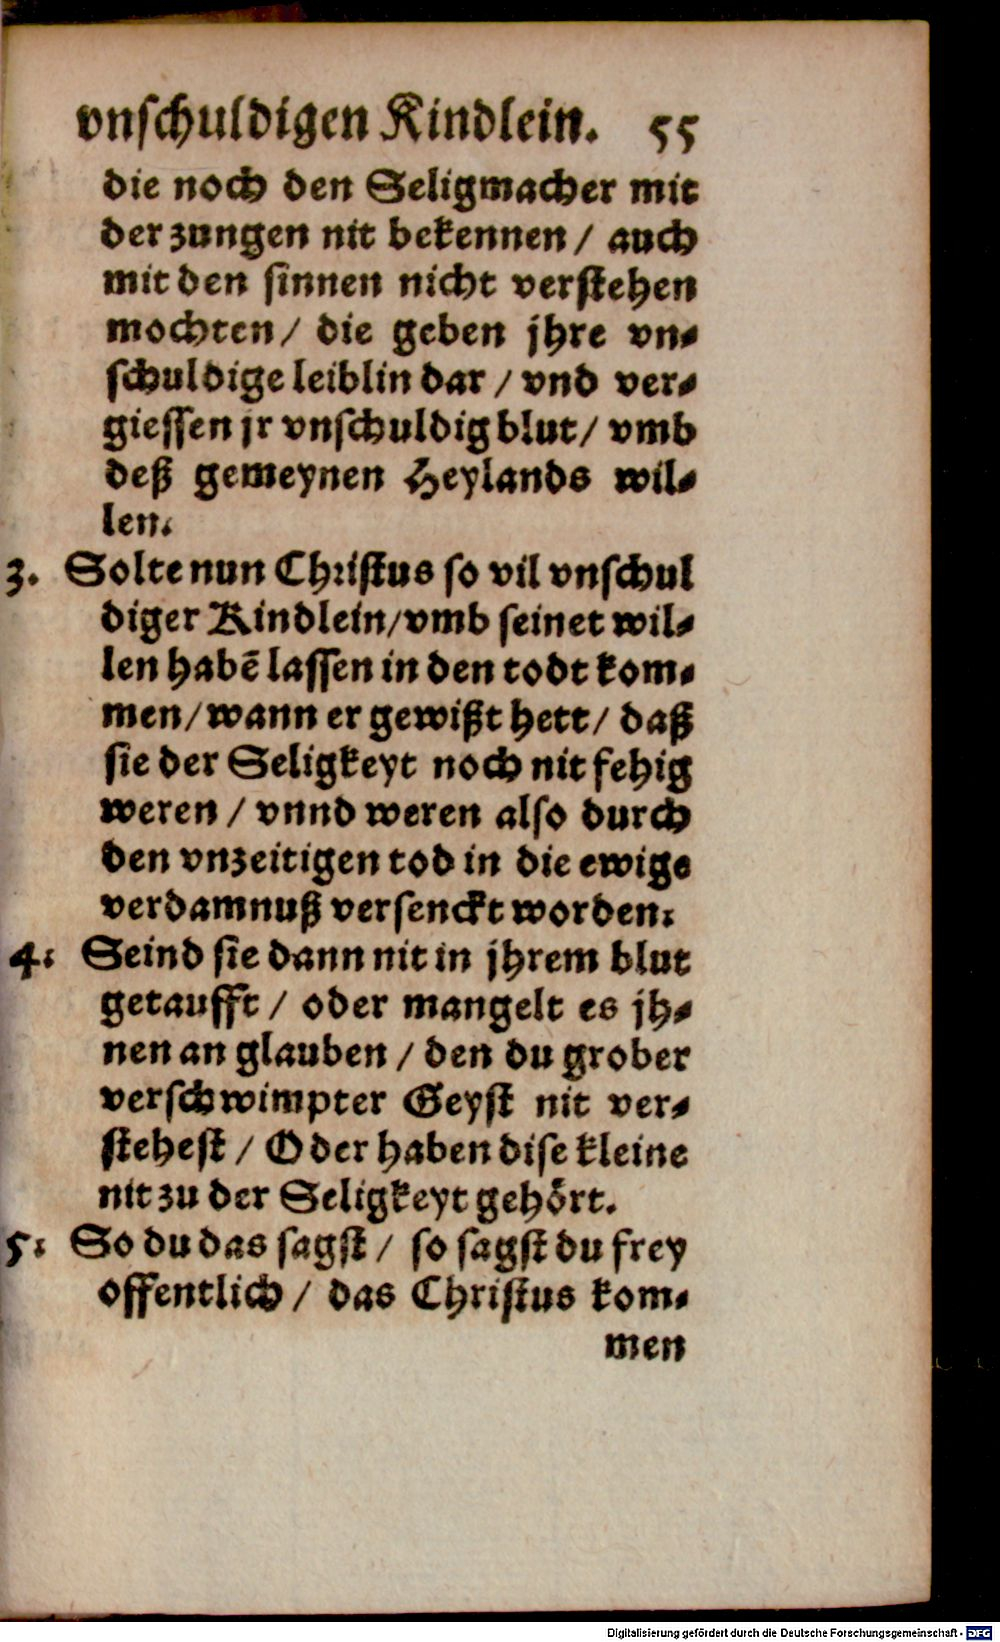 vnschuldigen Kindlein. 55
die noch den Seligmacher mit
der zungen nit bekennen / auch
mit den sinnen nicht verstehen
mochten / die geben jhre vn⸗
schuldige leiblin dar / vnd ver⸗
giessen jr vnschuldig blut / vmb
deß gemeynen Heylands wil⸗
len.
3. Solte nun Christus so vil vnschul
diger Kindlein / vmb seinet wil⸗
len habē lassen in den todt kom⸗
men / wann er gewißt hett / daß
sie der Seligkeyt noch nit fehig
weren / vnnd weren also durch
den vnzeitigen tod in die ewige
verdamnuß versenckt worden:
4: Seind sie dann nit in jhrem blut
getaufft / oder mangelt es jh⸗
nen an glauben / den du grober
verschwimpter Geyst nit ver⸗
stehest / Oder haben dise kleine
nit zu der Seligkeyt gehört.
5: So du das sagst / so sagst du frey
offentlich / das Christus kom⸗
men
Digitalisierung gefördert durch die Deutsche Forschungsgemeinschaft - DFG